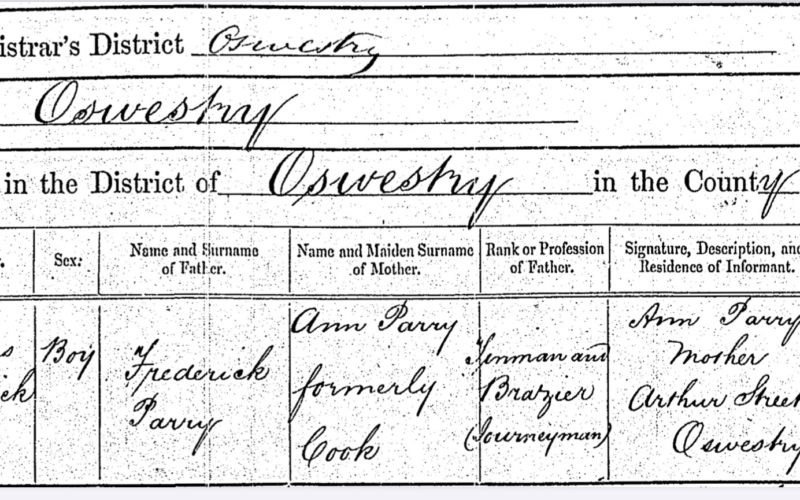 istrar's District Oswestry
Oswestry
in the District of Oswestry in the County
Sex.
Name and Surname
of Father.
Name and Maiden Surname
of Mother.
Rank or Profession
of Father.
Signature, Description, and
Residence of Informant.
s
ick
Boy
Frederick
Parry
Ann Parry
formerly
Cook
Tinman and
Brazier
(Journeyman)
Ann Parry
Mother
Arthur Street
Oswestry